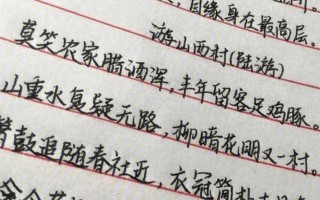 缘身在最高层。
游山西村(陆游)
莫笑农家腊酒浑,丰年留客足鸡豚。
山重水复疑无路,柳暗花明又一村。
箫鼓追随春社近,衣冠简朴